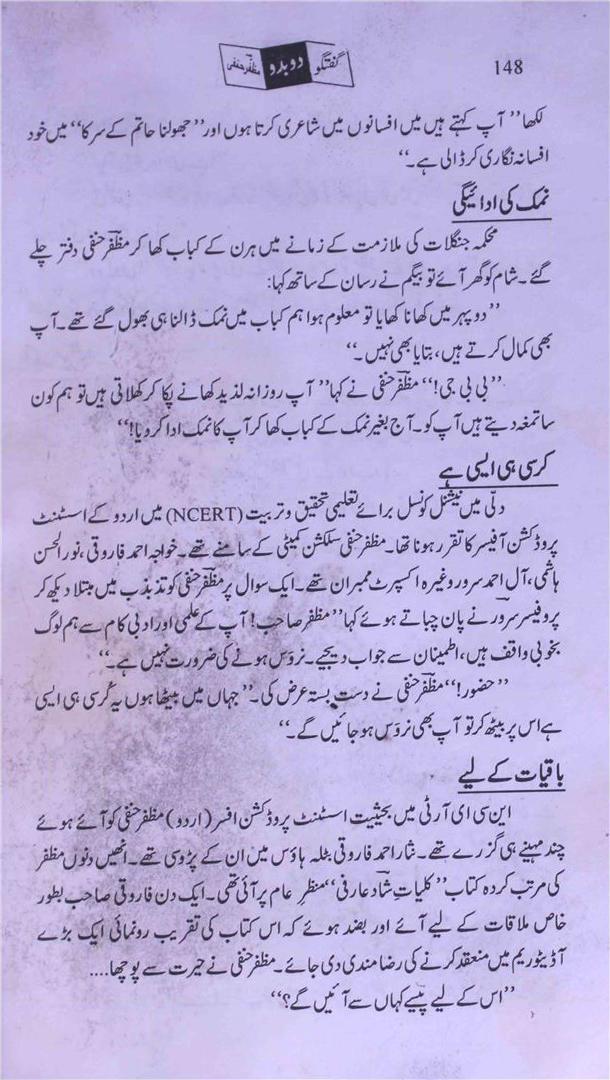 148
گفتگو دوبدو مظفر حنفی
لکھا’’ آپ کہتے ہیں میں افسانوں میں شاعری کرتا ہوں اور ’’جھولنا حاتم کے سر کا‘‘ میں خود
افسانہ نگاری کر ڈالی ہے۔‘‘
نمک کی ادائیگی
محکمہ جنگلات کی ملازمت کے زمانے میں ہرن کے کباب کھا کر مظفر حنفی دفتر چلے
گئے۔ شام کو گھر آئے تو بیگم نے رسان کے ساتھ کہا:
’’دوپہر میں کھانا کھایا تو معلوم ہوا ہم کباب میں نمک ڈالنا ہی بھول گئے تھے۔ آپ
بھی کمال کرتے ہیں، بتایا بھی نہیں۔‘‘
’’بی بی جی!‘‘ مظفر حنفی نے کہا ’’آپ روزانہ لذیذ کھانے پکا کر کھلاتی ہیں تو ہم کون
سا تمغہ دیتے ہیں آپ کو۔ آج بغیر نمک کے کباب کھا کر آپ کا نمک ادا کر دیا!‘‘
کرسی ہی ایسی ہے
دلّی میں نیشنل کونسل برائے تعلیمی تحقیق و تربیت (NCERT) میں اردو کے اسسٹنٹ
پروڈکشن آفیسر کا تقرر ہونا تھا۔ مظفر حنفی سلکشن کمیٹی کے سامنے تھے۔ خواجہ احمد فاروقی، نورالحسن
ہاشمی، آل احمد سرور وغیرہ اکسپرٹ ممبران تھے۔ ایک سوال پر مظفر حنفی کو تذبذب میں مبتلا دیکھ کر
پروفیسر سرور نے پان چباتے ہوئے کہا ’’مظفر صاحب! آپ کے علمی اور ادبی کام سے ہم لوگ
بخوبی واقف ہیں، اطمینان سے جواب دیجیے۔ نروس ہونے کی ضرورت نہیں ہے۔‘‘
’’حضور!‘‘ مظفر حنفی نے دست بستہ عرض کی۔ ’’جہاں میں بیٹھا ہوں یہ کُرسی ہی ایسی
ہے اس پر بیٹھ کر تو آپ بھی نروَس ہو جائیں گے۔‘‘
باقیات کے لیے
این سی ای آر ٹی میں بحیثیت اسسٹنٹ پروڈکشن افسر (اردو) مظفر حنفی کو آئے ہوئے
چند مہینے ہی گزرے تھے۔ نثار احمد فاروقی بٹلہ ہاؤس میں ان کے پڑوسی تھے۔ انھیں دنوں مظفر
کی مرتب کردہ کتاب ’’کلیاتِ شاد عارفی‘‘ منظرِ عام پر آئی تھی۔ ایک دن فاروقی صاحب بطور
خاص ملاقات کے لیے آئے اور بضد ہوئے کہ اس کتاب کی تقریب رونمائی ایک بڑے
آڈیٹوریم میں منعقد کرنے کی رضامندی دی جائے۔ مظفر حنفی نے حیرت سے پوچھا....
’’اس کے لیے پیسے کہاں سے آئیں گے؟‘‘